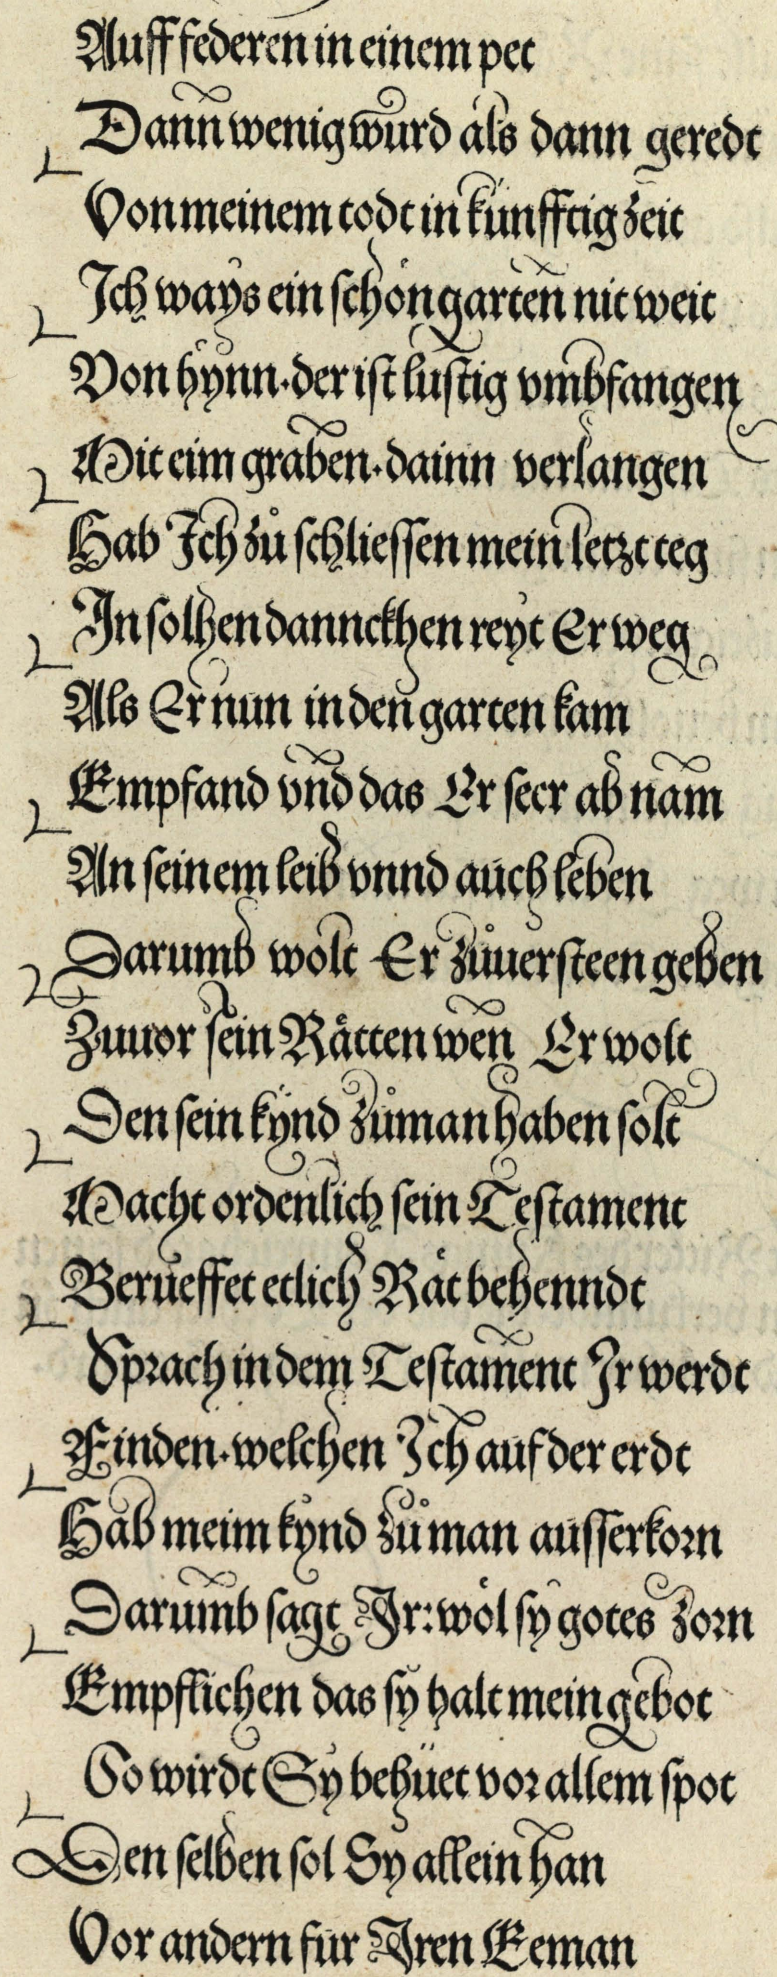 Auff federen in einem pet
Dann wenig wurd als dann geredt
Von meinem todt in künfftig zeit
Ich ways ein schön garten nit weit
Von hynn. der ist lustig vmbfangen
Mit eim graben. dainn verlangen
Hab Ich zů schliessen mein letzt teg
In solhen dannckhen reyt Er weg
Als Er nun in den garten kam
Empfand vnd das Er seer ab nam
An seinem leib vnnd auch leben
Darumb wolt Er zůuersteen geben
Zuuor sein Rätten wen Er wolt
Den sein kynd zůman haben solt
Macht ordenlich sein Testament
Berueffet etlich Rät behenndt
Sprach in dem Testament Ir werdt
Finden. welchen Ich auf der erdt
Hab meim kynd zů man ausserkorn
Darumb sagt Ir: wöl sy gotes zorn
Empflichen das sy halt mein gebot
So wirdt Sy behüet vor allem spot
Den selben sol Sy allein han
Vor andern für Iren Eeman